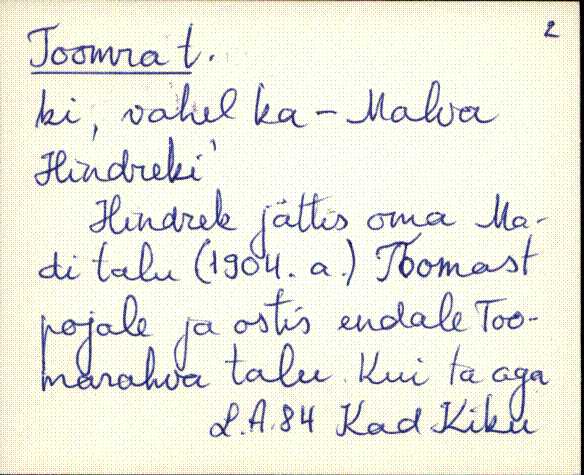 2
Toomra t.
ki, vahel ka - Malva
Hindreki'
Hindrek jättis oma Ma-
di talu (1904. a.) Toomast
pojale ja ostis endale Too-
marahva talu. Kui ta aga
L.A.84 Kad Kiku